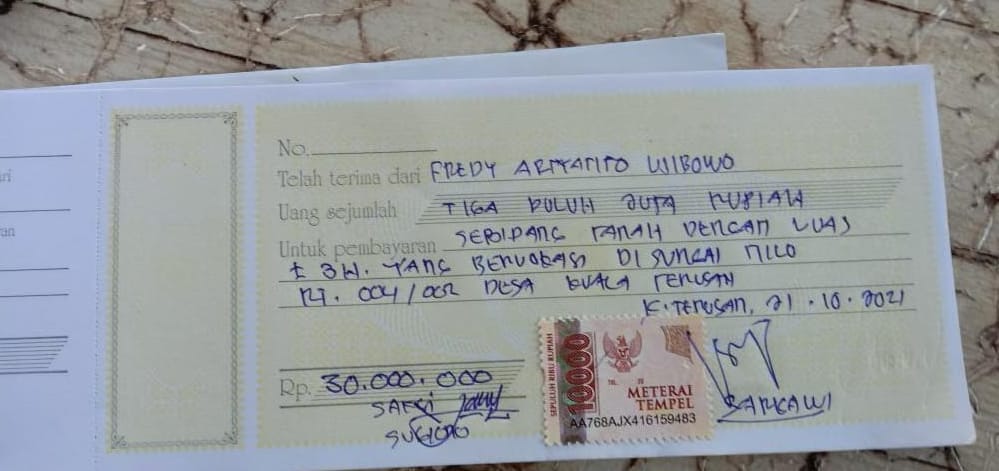 No.
Telah terima dari FREDY ARIYANTO WIBOWO
Uang sejumlah TIGA PULUH JUTA RUPIAH
Untuk pembayaran SEBIDANG TANAH DENGAN LUAS
± 3H. YANG BERLOKASI DI SUNGAI NILO
RT. 004/002 DESA KUALA TERUSAN
K. TERUSAN, 21 . 10 . 2021
SEPULUH RIBU RUPIAH
10000
METERAI
TEMPEL
AA768AJX416159483
Rp. 30.000.000
SAKSI
SARKAWI